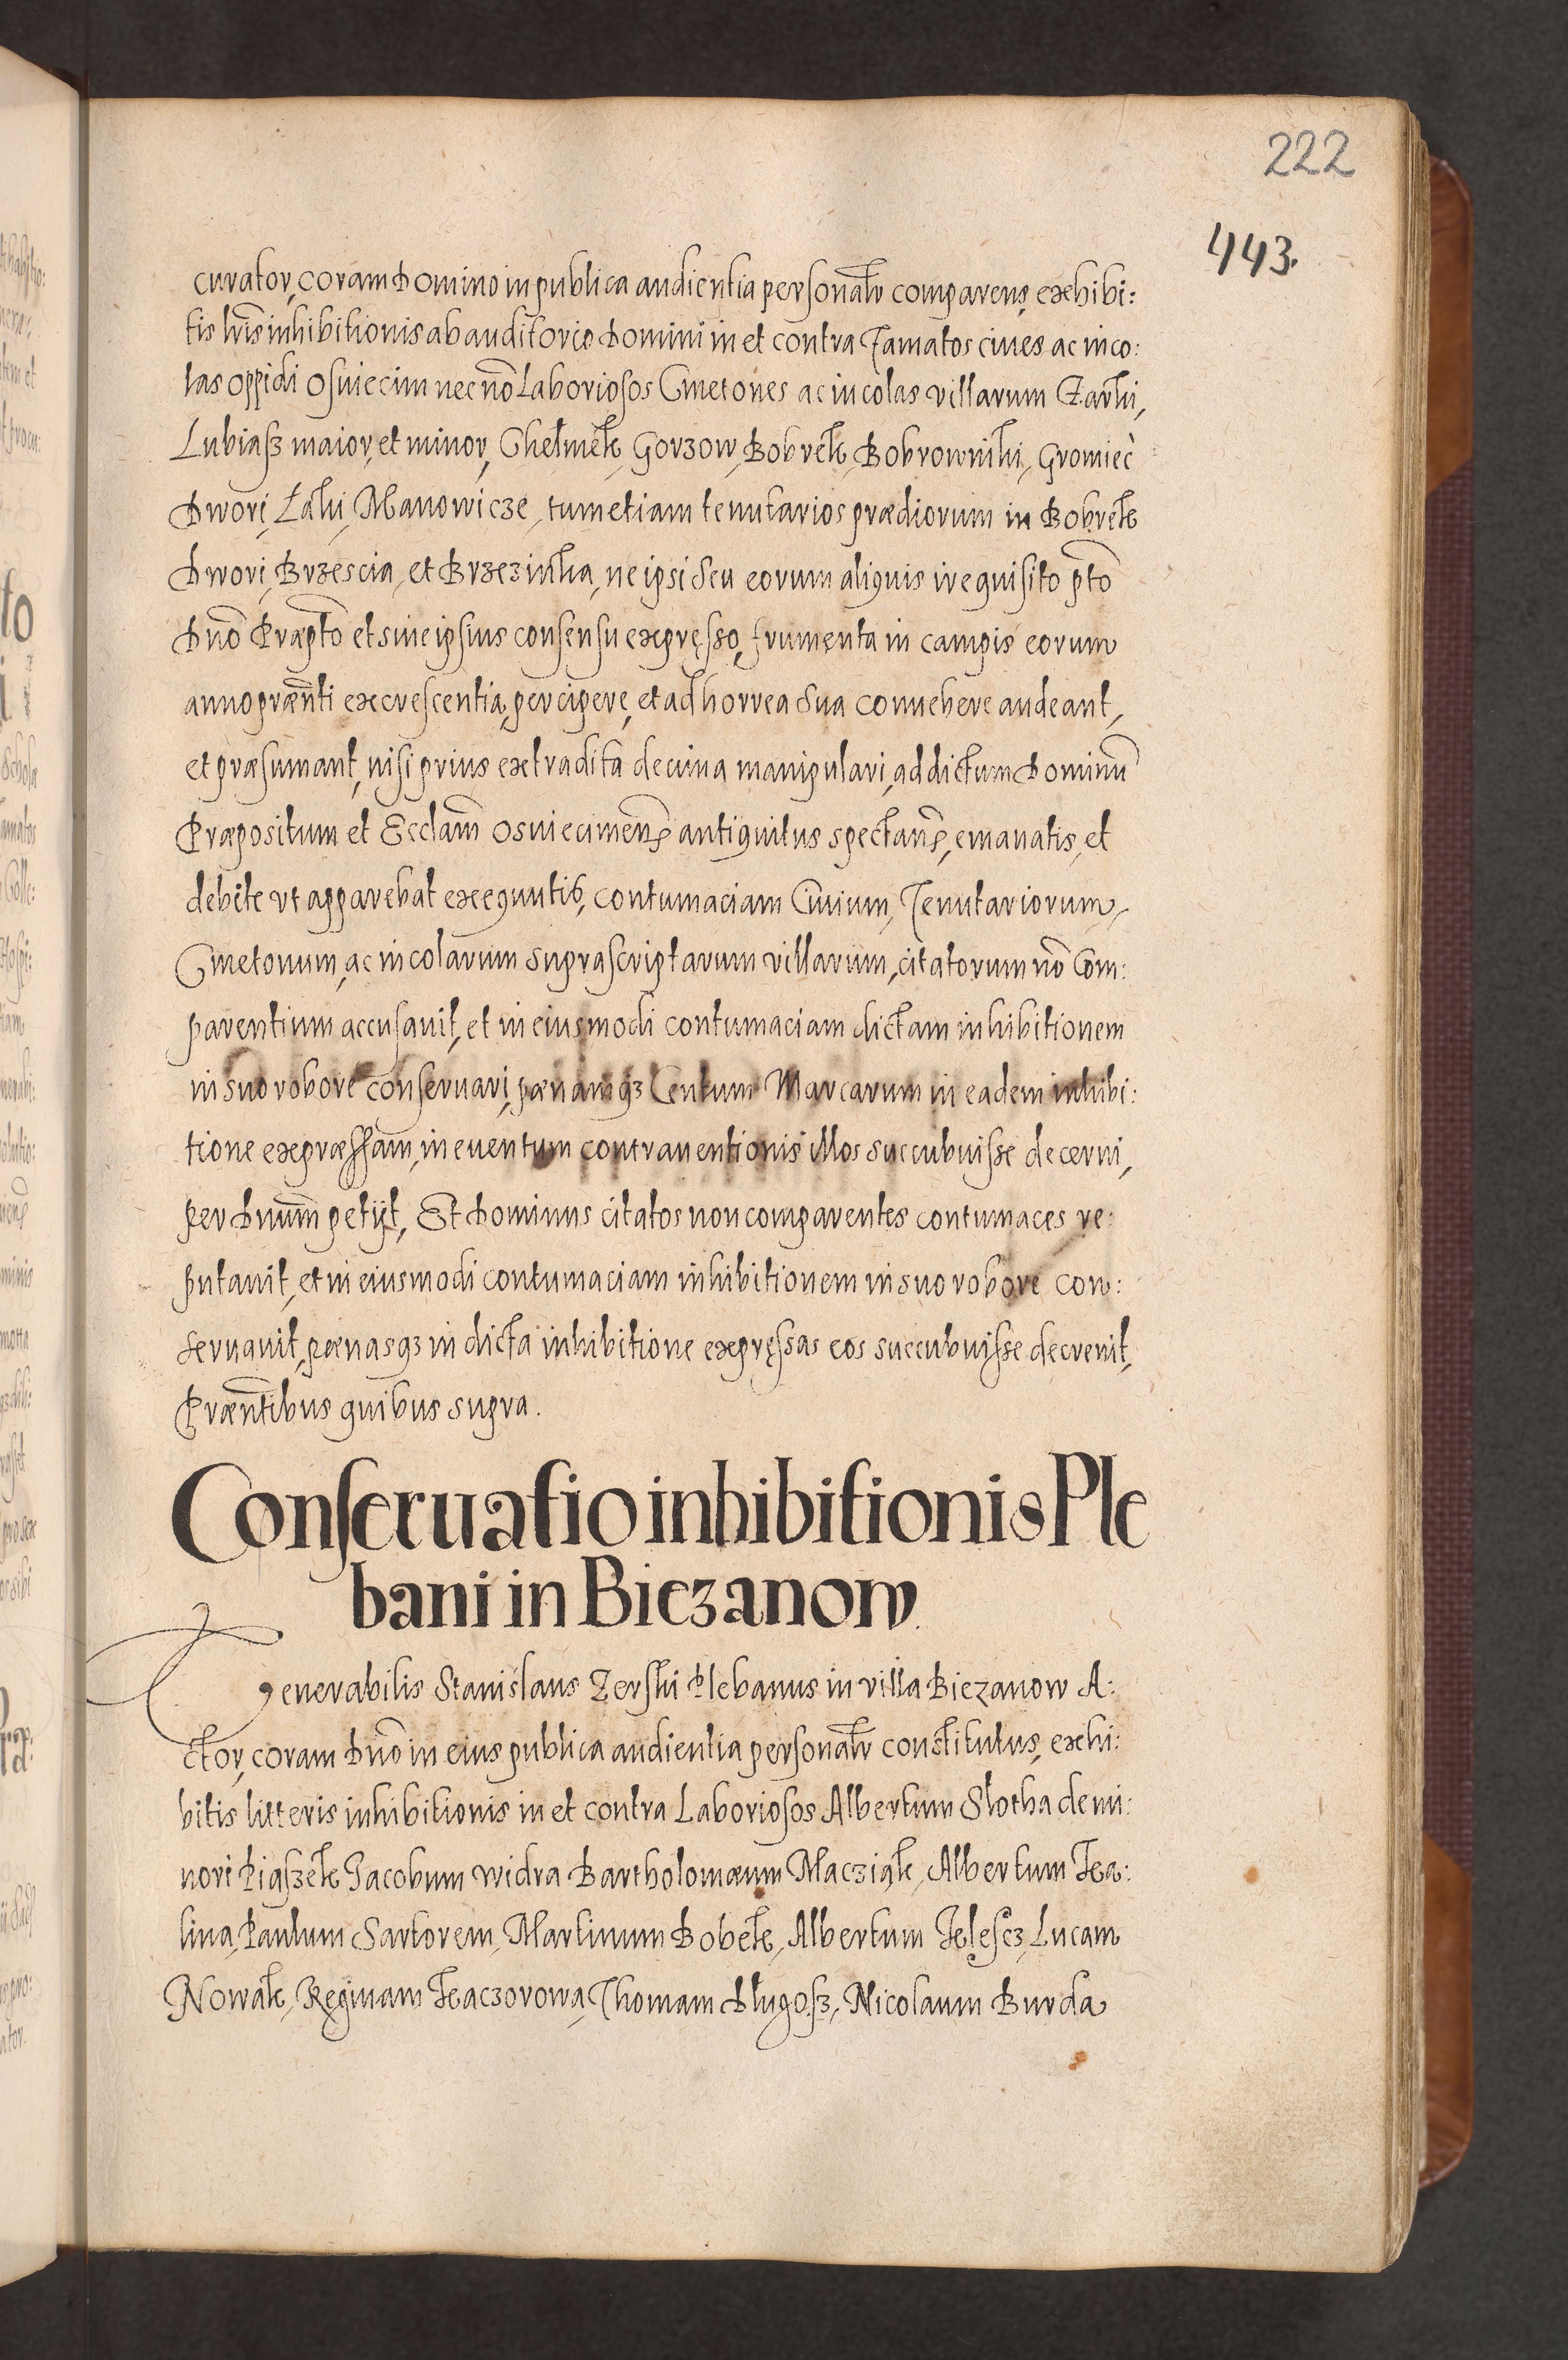 222
443.
curator, coram Domino in publica audientia personalr̃ comparens, exhibi:
tis lr̃is inhibitionis ab auditorio Domini in et contra Famatos ciues ac inco:
las oppidi Osuiecim nec nõ Laboriosos Cmetones ac incolas villarum Zarki,
Lubiasz maior, et minor, Chelmek, Gorzow, Bobrek, Bobrowniki, Gromiec
Dwori, Laki, Manowicze, tum etiam tenutarios prædiorum in Bobrek
Dwori, Brzescia, et Brzezinka, ne ipsi seu eorum aliquis irequisito pto
Dnõ Præpto et sine ipsius consensu expresso, frumenta in campis eorum
anno præñti excrescentia, percipere, et ad horrea sua conuehere audeant,
et præsumant, nisi prius extradita decima manipulari, ad dictum Dominũ
Præpositum et Ecclam̃ Osuiecimenß antiquitus spectanß, emanatis, et
debite vt apparebat exequutis, contumaciam Ciuium, Tenutariorum,
Cmetonum, ac incolarum suprascriptarum villarum, citatorum nõ Com:
parentium accusauit, et in eiusmodi contumaciam dictam inhibitionem
in suo robore conseruari, pænamqз Centum Marcarum in eadem inhibi:
tione expræssam, in euentum contrauentionis illos succubuisse decerni,
per Dnum̃ petijt, Et Dominus citatos non comparentes contumaces re:
putauit, et in eiusmodi contumaciam inhibitionem in suo robore con:
seruauit, pænasqз in dicta inhibitione expressas eos succubuisse decreuit,
Præñtibus quibus supra.
Conseruatio inhibitionis Ple
bani in Biezanow.
Venerabilis Stanislaus Zerski Plebanus in villa Biezanow A:
ctor, coram Dnõ in eius publica audientia personalr̃ constitutus, exhi:
bitis litteris inhibitionis in et contra Laboriosos Albertum Slotha de mi:
nori Piaszek Jacobum Widra Bartholomæum Macziak, Albertum Ka:
lina, Paulum Sartorem, Martinum Bobek, Albertum Lucam
Nowak, Reginam Kaczorowa, Thomam Długosz, Nicolaum Burda